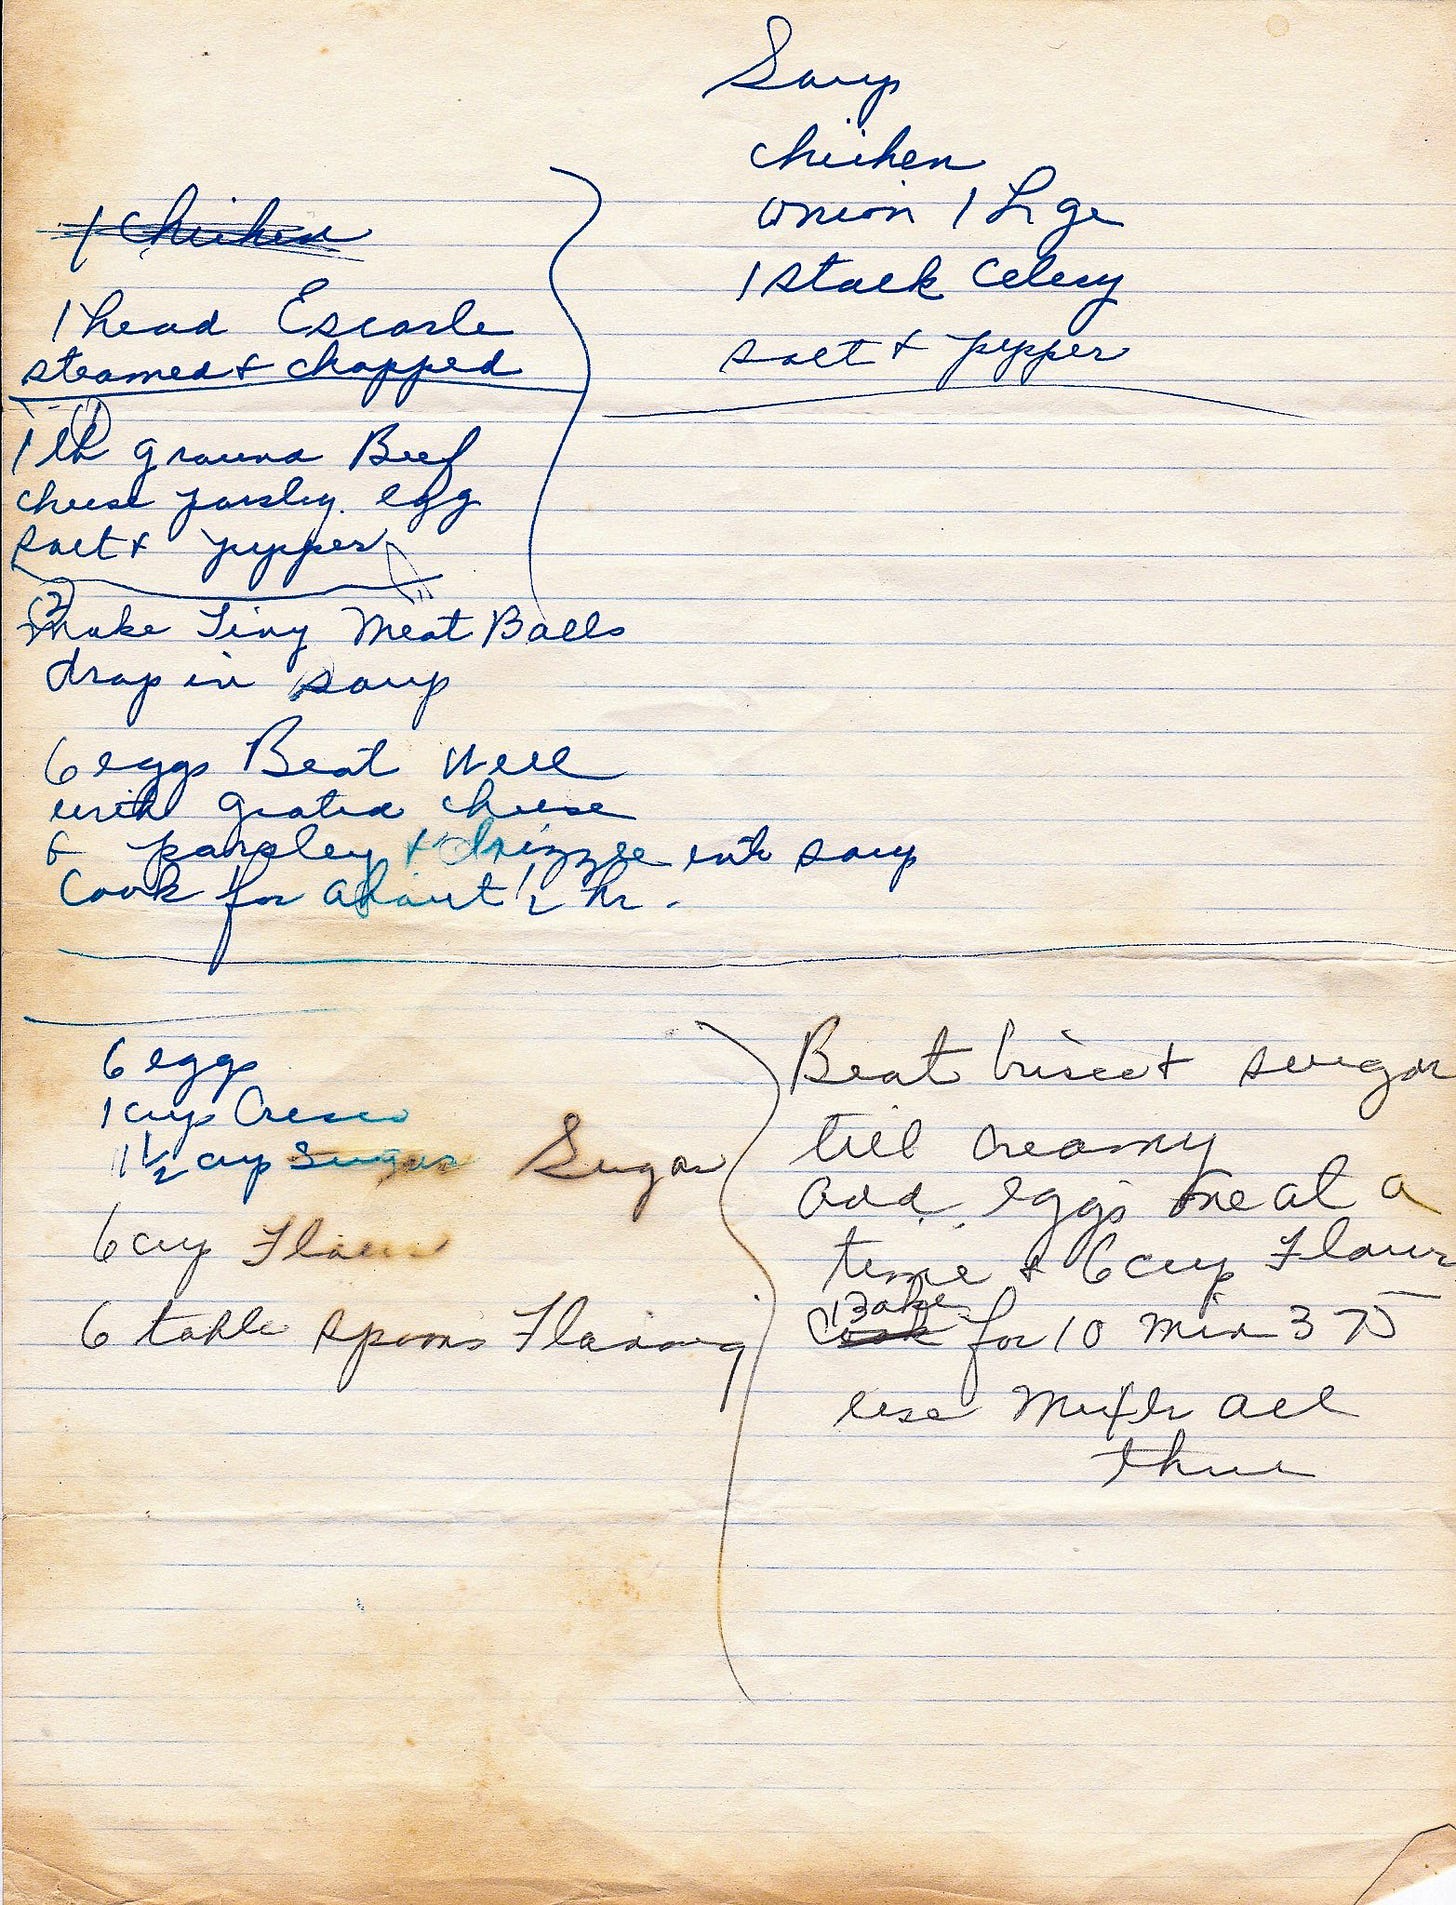 Soup
chicken
onion 1 Lge
1 stalk celery
salt & pepper
1 Chicken
1 head Escarle
steamed & chopped
(1)
1 lb ground Beef
cheese parsley. egg
salt & pepper
(2)
make Tiny Meat Balls
drop in soup
6 eggs Beat Well
with grated cheese
& parsley & drizzle into soup
Cook for about 1/2 hr.
6 eggs
1 cup Cresco
1 1/2 cup Sugar Sugar
6 cup Flour
6 table spoons Flavoring
Beat Crisco & sugar
till creamy
add eggs one at a
time & 6 cup Flour
Bake
Cook for 10 min 375
use all
three